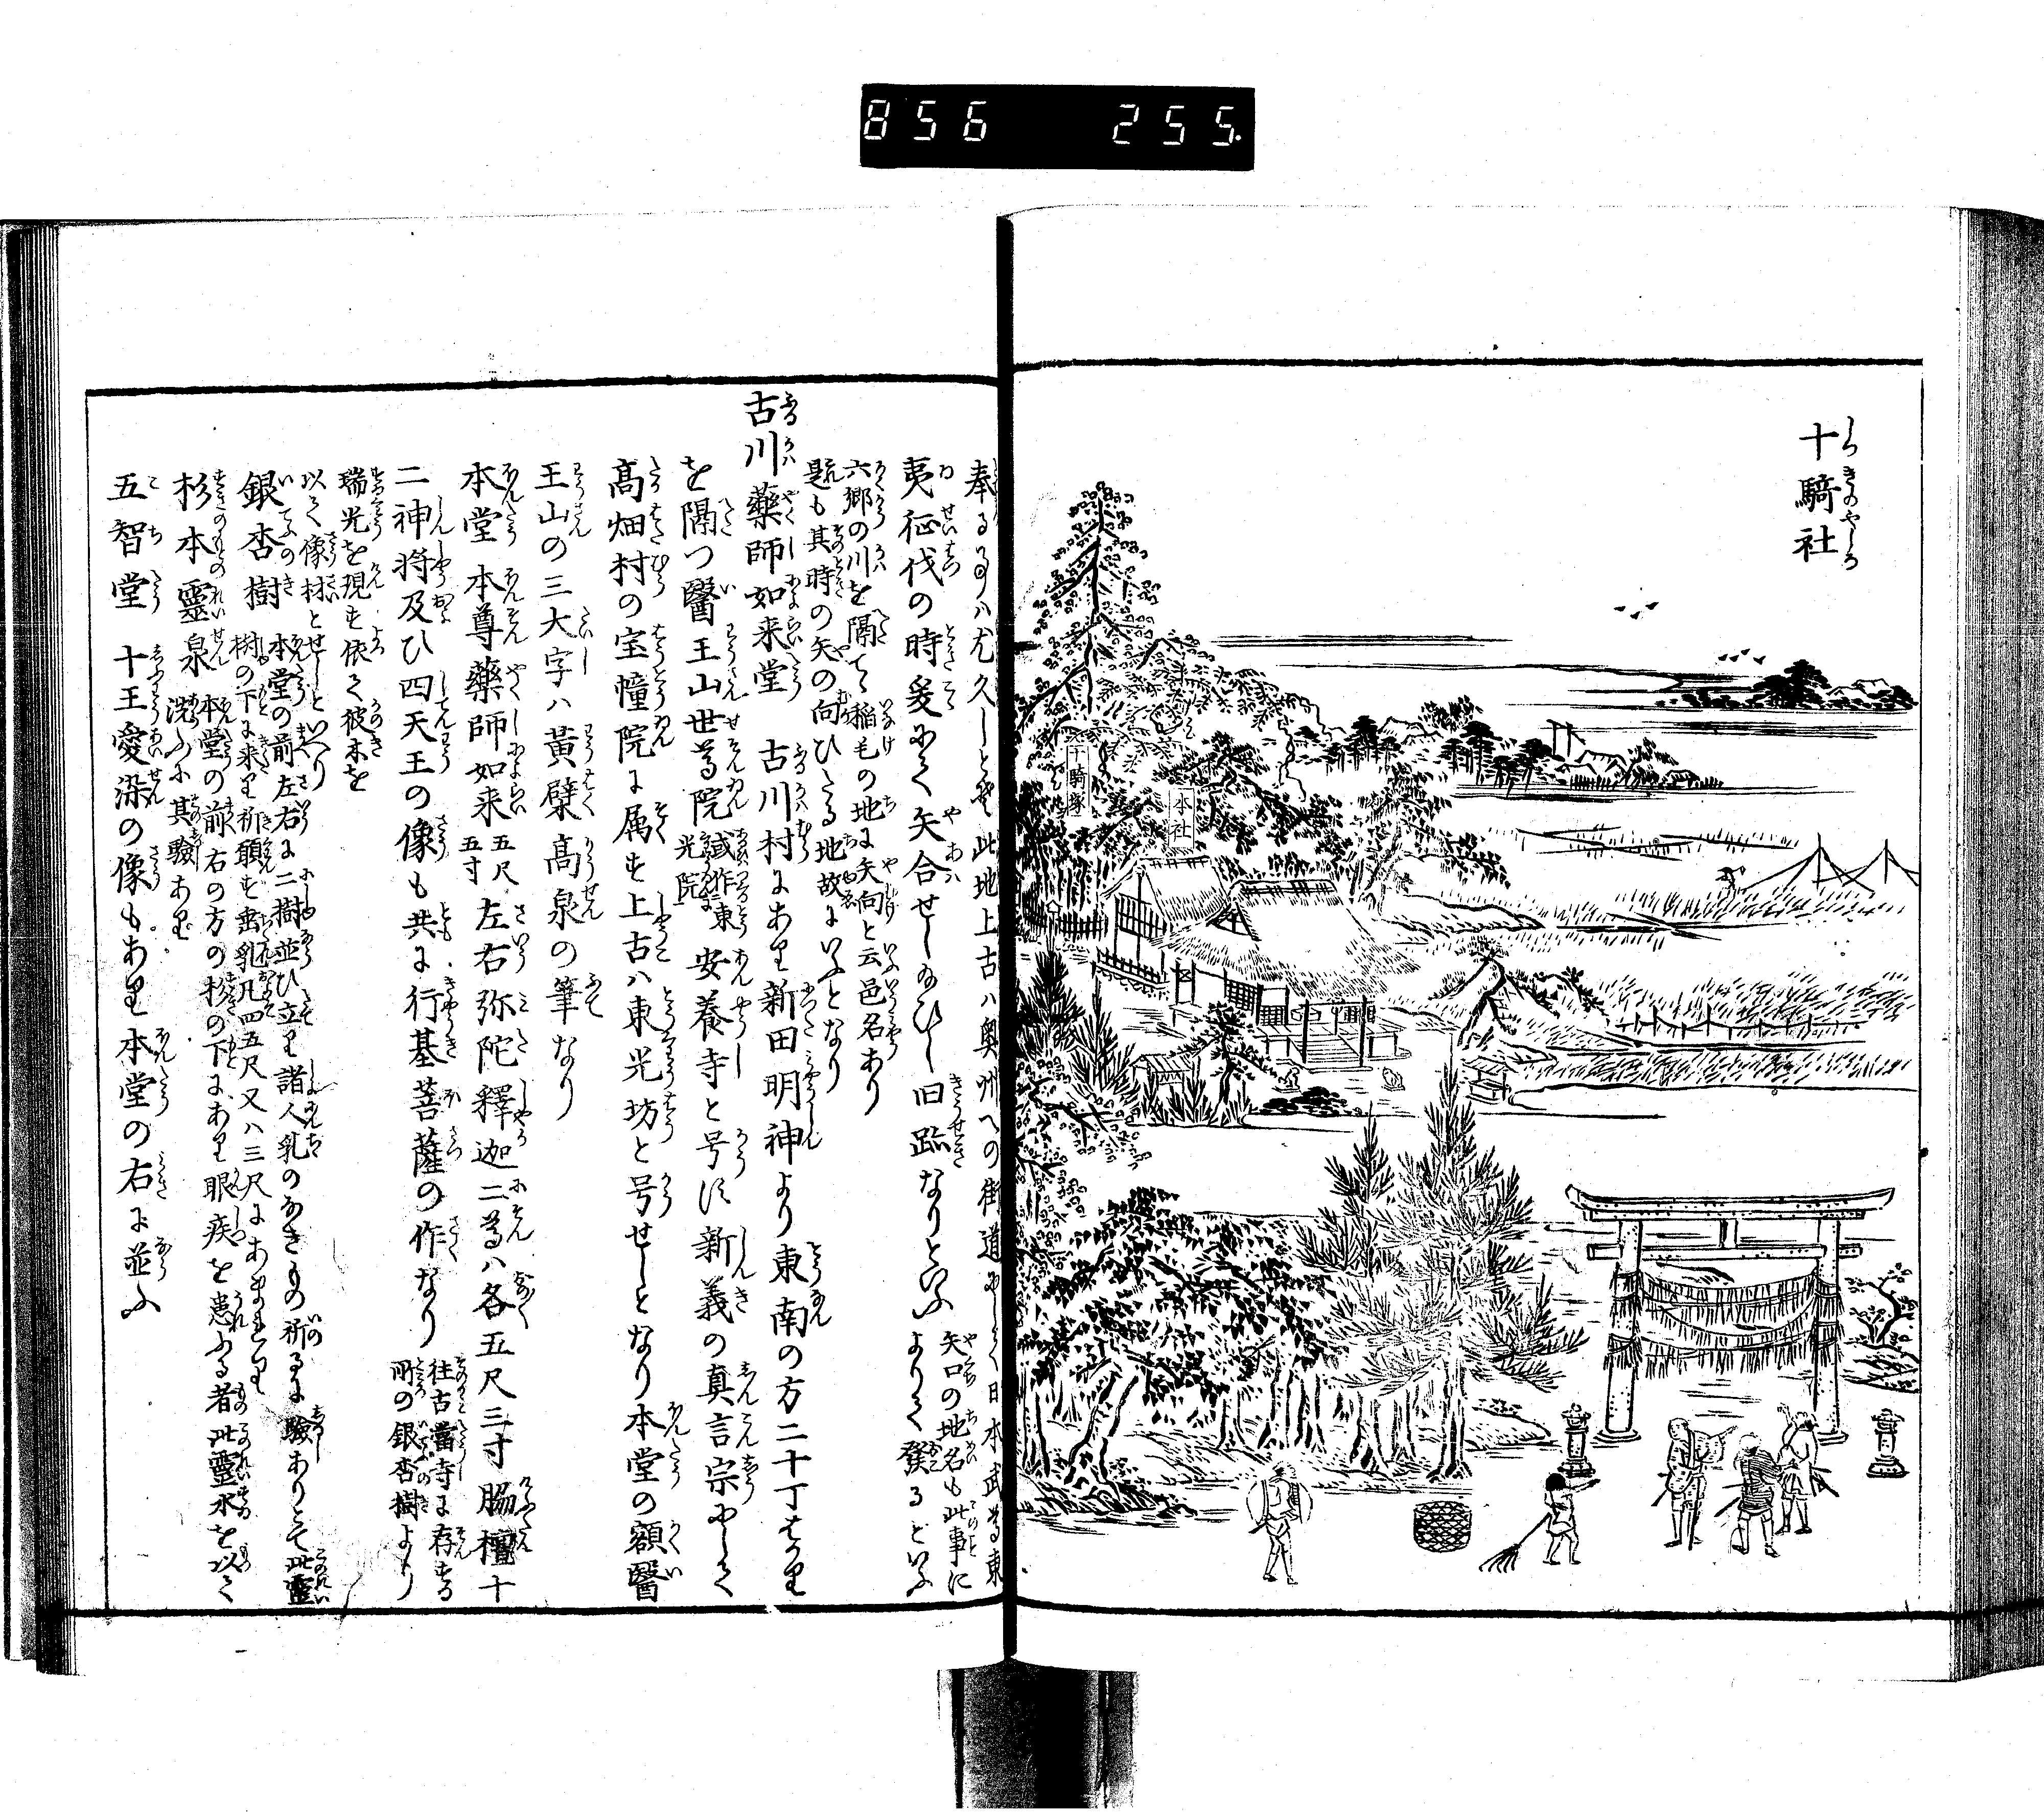 856 255
十騎社
十騎塚
本社
奉る事ハ尤久しとぞ此地上古ハ奥州への街道にして日本武尊東
夷征伐の時爰にて矢合せし給ひし旧跡なりといふ
矢口の地名も此事に
よりて發るといふ
六郷の川を隔て稲毛の地に矢向と云邑名あり
是も其時の矢の向ひたる地故にいふとなり
古川藥師如来堂 古川村にあり新田明神より東南の方二十丁はかり
を隔つ醫王山世尊院
或作東
光院
安養寺と号す新義の真言宗にして
髙畑村の宝幢院に属す上古ハ東光坊と号せしとなり本堂の額醫
王山の三大字ハ黄檗髙泉の筆なり
本堂 本尊藥師如来
五尺
五寸
左右弥陀釋迦二尊ハ各五尺三寸脇檀十
二神将及ひ四天王の像も共に行基菩薩の作なり
往古當寺に存する
所の銀杏樹より
瑞光を現す依て彼木を
以て像材とせしといへり
銀杏樹
本堂の前左右に二樹並ひ立り諸人乳のなきもの祈るに驗ありとて此靈
樹の下に来り祈願す垂乳凡四五尺又ハ三尺にあまれり
杉本靈泉
本堂の前右の方の杉の下にあり眼疾を患ふる者此靈水を以て
洗ふに其驗あり
五智堂 十王愛染の像もあり本堂の右に並ふ